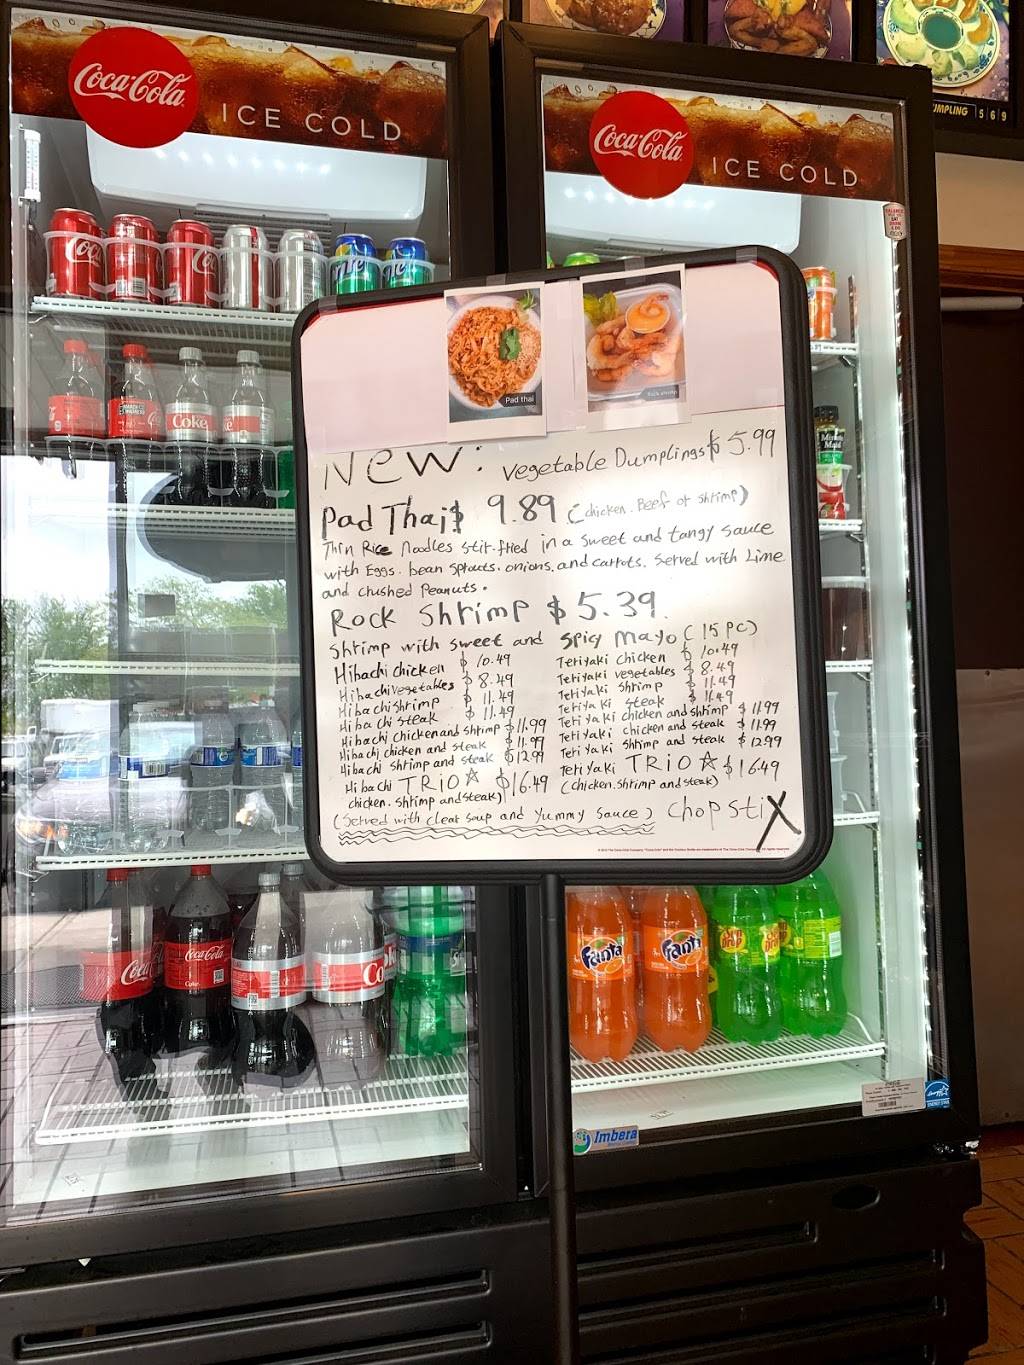 Coca-Cola
ICE COLD
Coca-Cola
ICE COLD
UMPLING 5 6 9
Pad thai
Rock shrimp
New: Vegetable Dumplings $ 5.99
Pad Thai $ 9.89 (chicken. Beef or shrimp)
Thin Rice Noodles stir-fried in a sweet and tangy sauce
with Eggs. bean sprouts. onions. and carrots. Served with Lime
and crushed Peanuts.
Rock Shrimp $ 5.39
Shrimp with sweet and Spicy mayo (15 PC)
Hibachi chicken $ 10.49
Hibachi vegetables $ 8.49
Hibachi Shrimp $ 11.49
Hibachi steak $ 11.49
Hibachi chicken and shrimp $ 11.99
Hibachi chicken and steak $ 11.99
Hibachi Shrimp and steak $ 12.99
Hibachi TRIO ☆ $ 16.49
(chicken. Shrimp and steak)
Teriyaki chicken $ 10.49
Teriyaki vegetables $ 8.49
Teriyaki Shrimp $ 11.49
Teriyaki steak $ 11.49
Teriyaki chicken and shrimp $ 11.99
Teriyaki chicken and steak $ 11.99
Teriyaki shrimp and steak $ 12.99
Teriyaki TRIO ☆ $ 16.49
(chicken. Shrimp and steak)
(Served with clear soup and Yummy Sauce) Chop stiX
Coke
Minute Maid
Coca-Cola
Coca-Cola
Co
Fanta
Fanta
Sun Drop
Imbera
ENERGY STAR